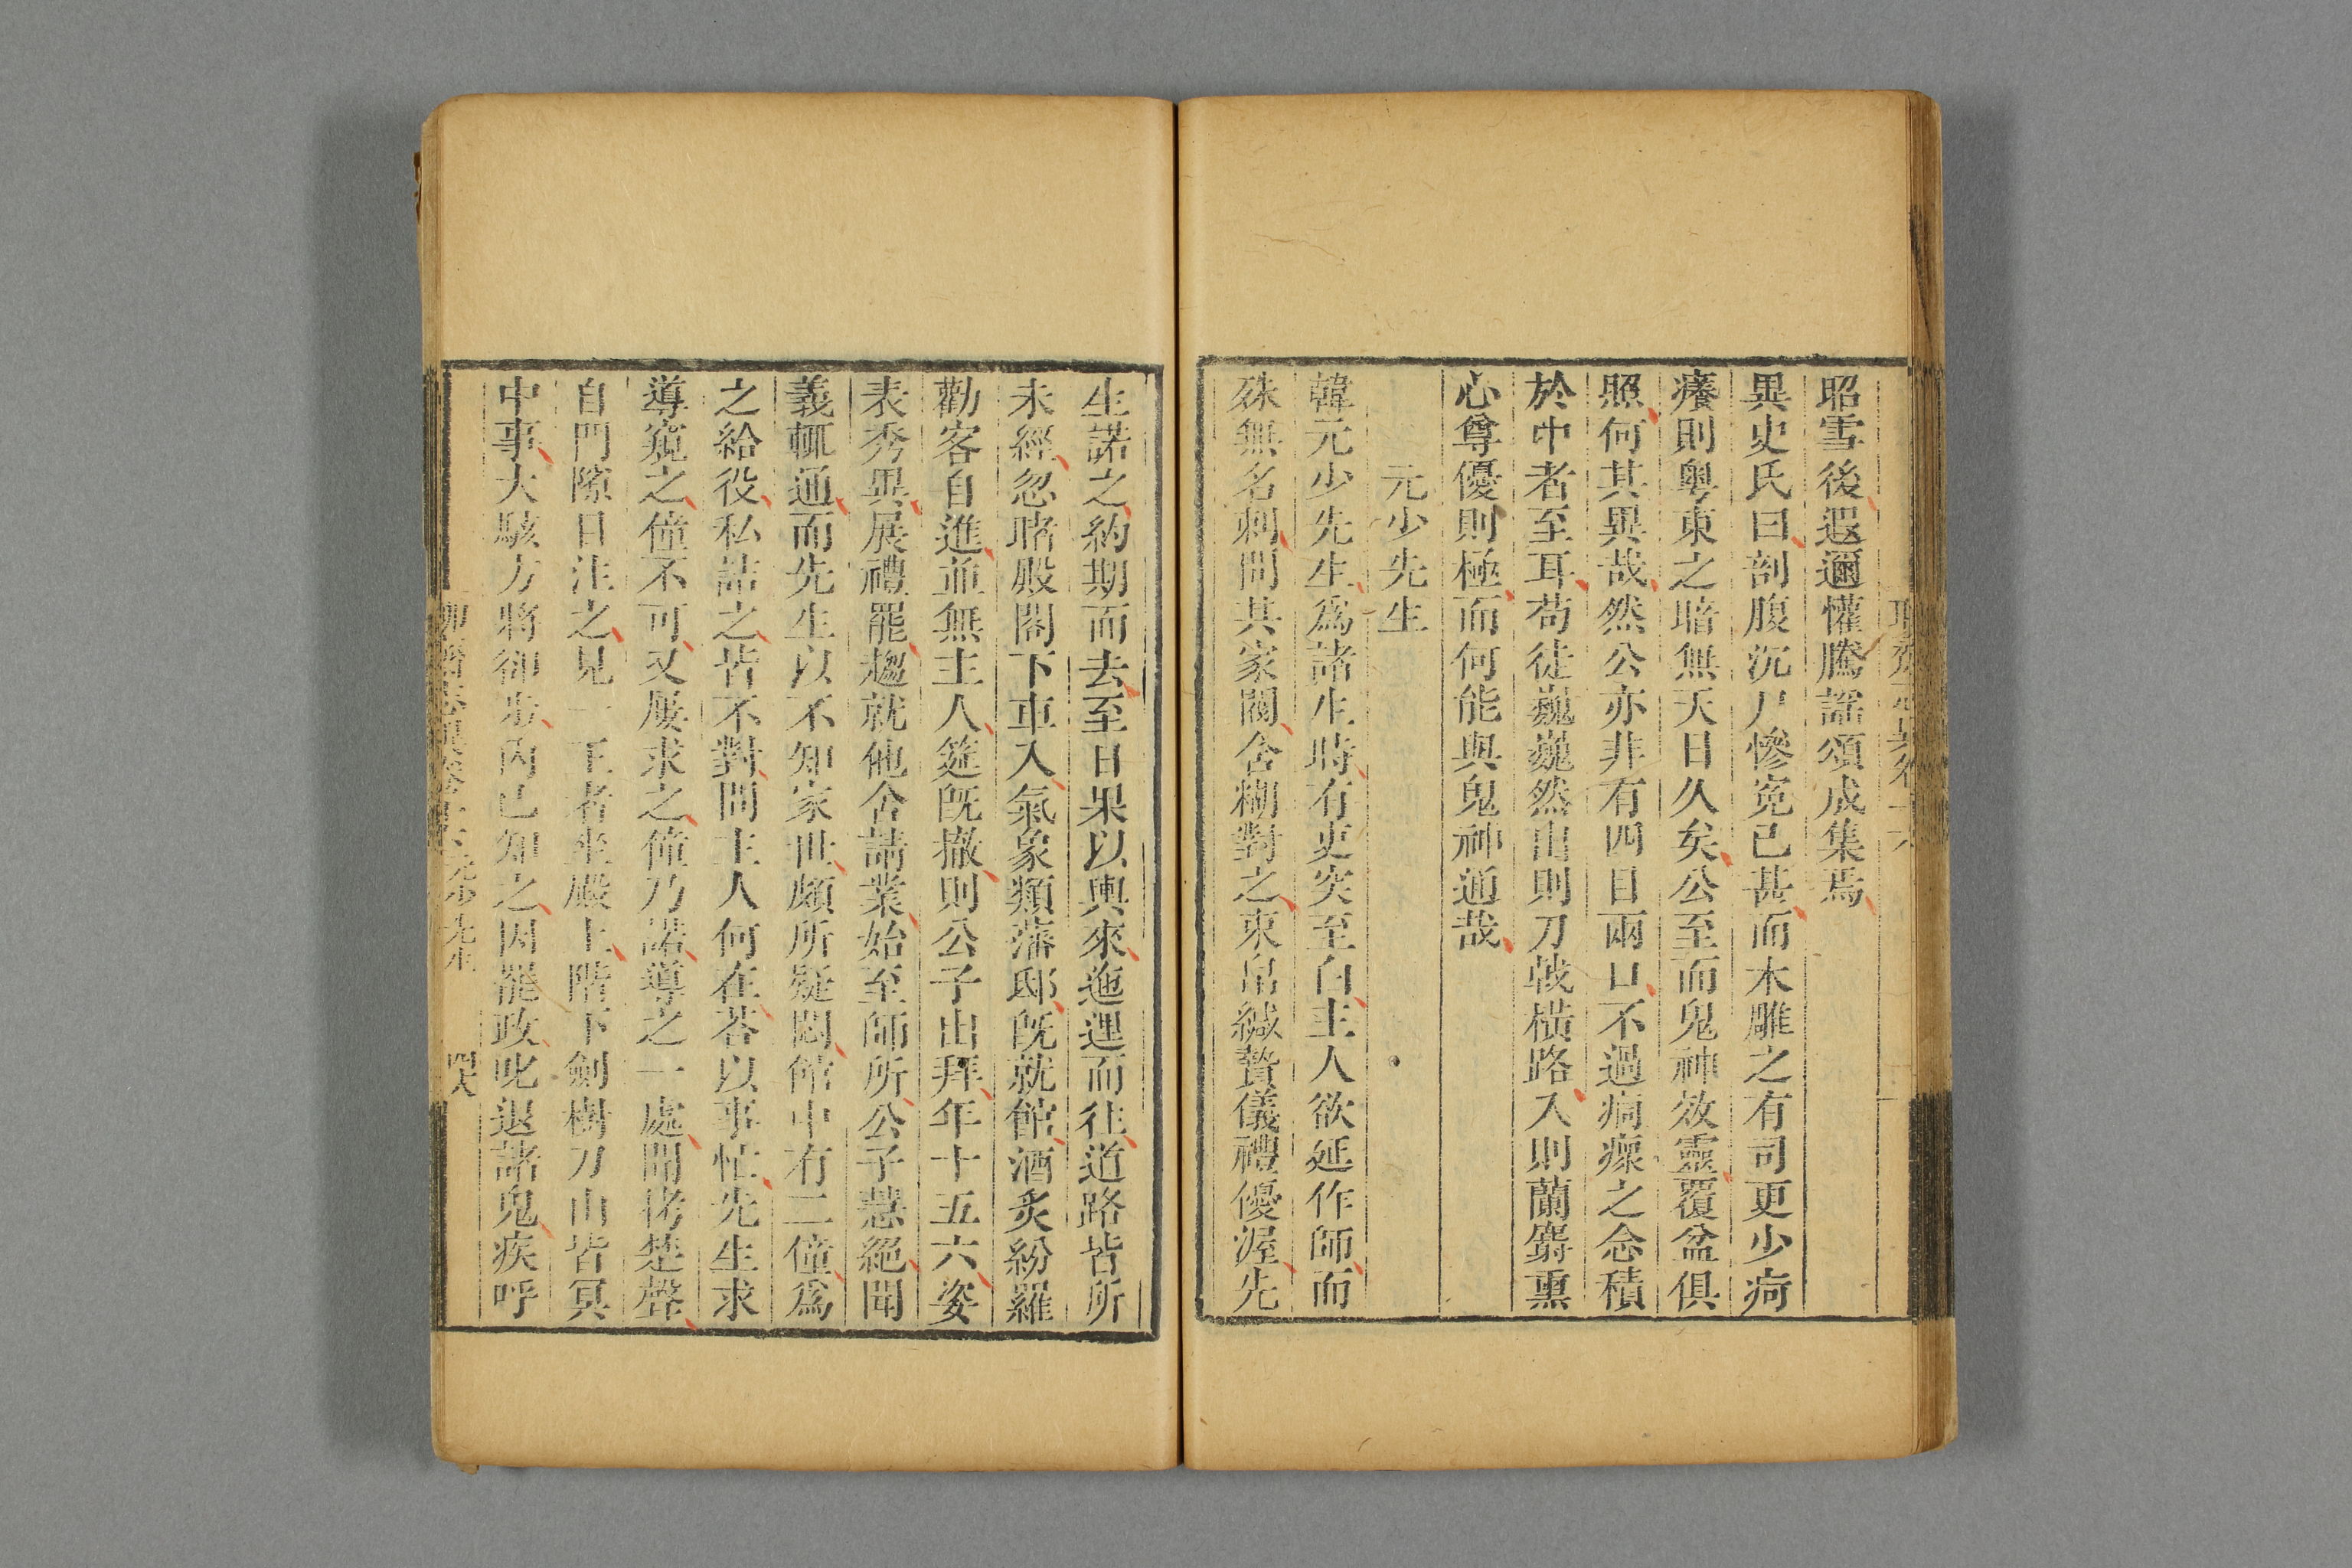 昭雪後遐邇懽騰謡頌成集焉
異史氏曰剖腹沉尸慘寃已甚而木雕之有司更少疴
癢則粤東之暗無天日久矣公至而鬼神效靈覆盆俱
照何其異哉然公亦非有四目兩口不過痌瘝之念積
於中者至耳苟徒巍巍然出則刀㦸橫路入則蘭麝熏
心尊優則極而何能與鬼神通哉
元少先生
韓元少先生爲諸生時有吏突至白主人欲延作師而
殊無名刺問其家閥含糊對之束帛緘贄儀禮優渥先
生諾之約期而去至日果以輿來迤逦而往道路皆所
未經忽睹殿閣下車入氣象類藩邸旣就館酒炙紛羅
勸客自進並無主人筵旣撤則公子出拜年十五六姿
表秀異展禮罷趨就他舍請業始至師所公子慧絶聞
義輒通而先生以不知家世頗所疑悶館中有二僮爲
之給役私詰之皆不對問主人何在荅以事忙先生求
導窺之僮不可又屢求之僮乃諾導之一處聞拷楚聲
自門隙目注之見一王者坐殿上階下劍樹刀山皆冥
中事大駭方將卻步内已知之因罷政叱退諸鬼疾呼
元少先生